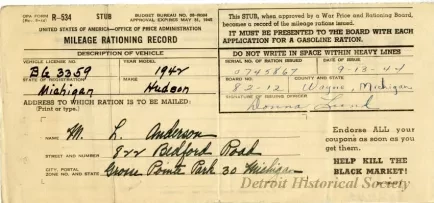 OPA FORM R-534 STUB BUDGET BUREAU NO. 08-R034
APPROVAL EXPIRES MAY 31, 1945
UNITED STATES OF AMERICA—OFFICE OF PRICE ADMINISTRATION
MILEAGE RATIONING RECORD
DESCRIPTION OF VEHICLE
VEHICLE LICENSE NO. YEAR MODEL
BG 3359 1942
STATE OF REGISTRATION MAKE
Michigan Hudson
ADDRESS TO WHICH RATION IS TO BE MAILED:
(Print or type.)
NAME M. L. Anderson
STREET AND NUMBER 822 Bedford Road
CITY, POSTAL ZONE NO. AND STATE Grosse Pointe Park 30 Michigan
This STUB, when approved by a War Price and Rationing Board,
becomes a record of the mileage rations issued.
IT MUST BE PRESENTED TO THE BOARD WITH EACH
APPLICATION FOR A GASOLINE RATION.
DO NOT WRITE IN SPACE WITHIN HEAVY LINES
SERIAL NO. OF RATION ISSUED DATE OF ISSUE
2745867 9-13-44
BOARD NO. COUNTY AND STATE
82-12 Wayne, Michigan
SIGNATURE OF ISSUING OFFICER
Donna
Endorse ALL your
coupons as soon as you
get them.
HELP KILL THE
BLACK MARKET!
Detroit Historical Society